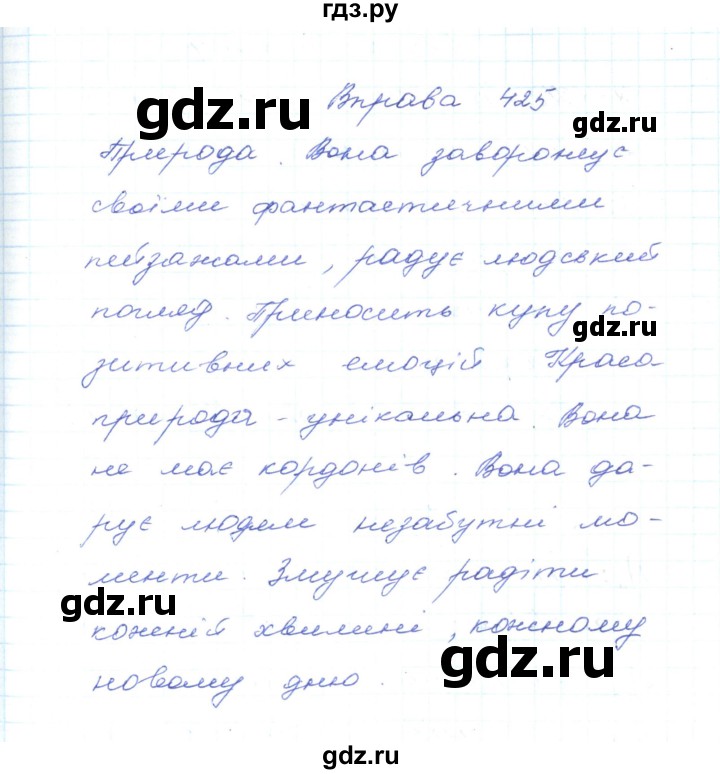 гдз.ру
gdz.ru
Вправа 425
gdz.ru
Природа. Вона заворожує
своїми фантастичними
пейзажами, радує людський
погляд. Приносить купу по-
gdz.ru
зитивних емоцій. Краса
природи - унікальна. Вона
не має кордонів. Вона да-
рує людям незабутні мо-
менти. Змушує радіти
gdz.ru
кожній хвилині, кожному
gdz.ru
новому дню.
gdz.ru